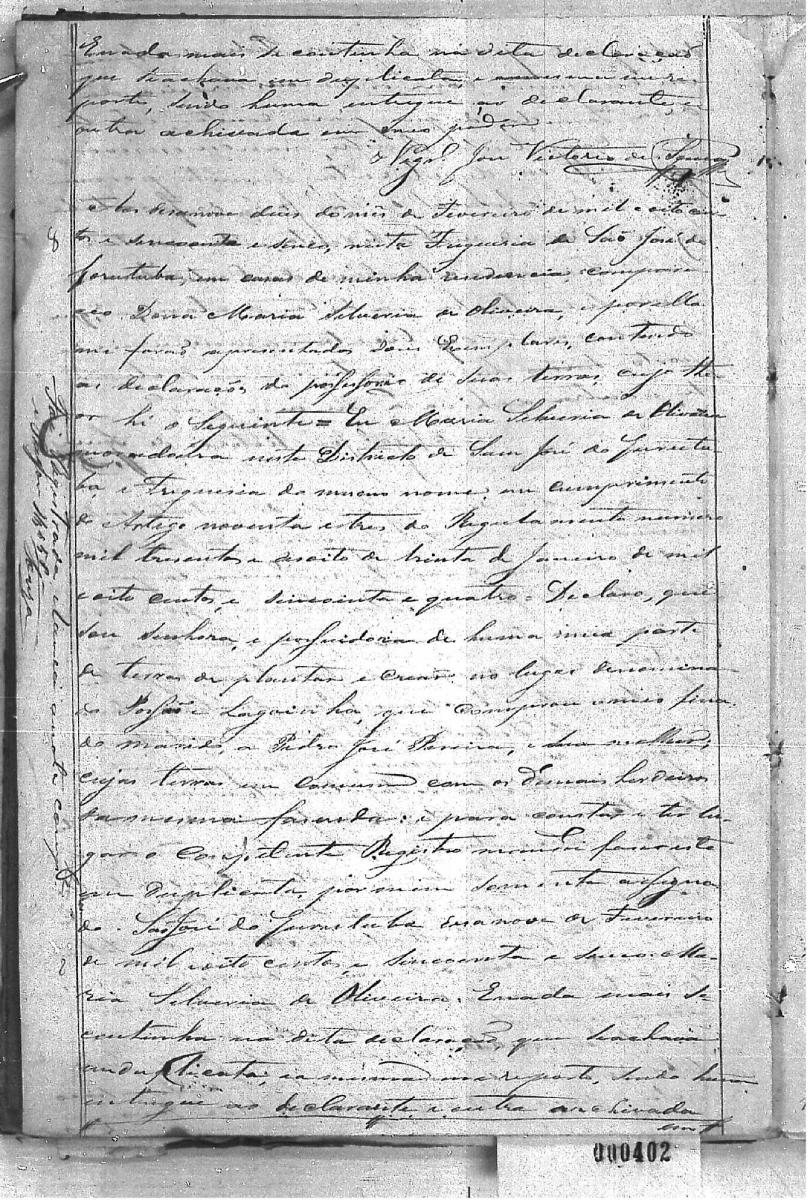 E nada mais se continha na dita declaração
que se achava em duplicata, e a mesma me re
porto, sendo huma entregue ao declarante, e
outra achivada em meu poder
o Vigº José Victorio de Souza
Aos desanove dias do mês de Fevereiro de mil e oito cen
tos e sincoenta e sinco, nesta Freguesia de São José do
Gorutuba, em casas de minha residencia, compare
ceo Dona Maria Silveria de Oliveira, e por ella
me forão apresentados dous Exemplares, contendo
as declarações da possessões de suas terras, cujo the
or hé o Seguinte = Eu Maria Silveria de Oliveira
moradora neste Districto de Sam José do Gurutu
ba e Freguesia do mesmo nome, em cumprimento
do Artigo noventa e tres do Regulamento numero
mil tresentos e desoito de trinta de Janeiro de mil
oito centos, e sincoenta e quatro = Declaro, que
sou senhora, e possuidora de huma parte
de terras de plantar e crear no lugar denomina
do e Lagoinha, que comprou o meu fina
do marido, a Pedro José Pereira, e sua mulher,
cujas terras em comum com os demais herdeiros
da mesma fasenda: e para constar e ter lu
gar o Competente Registro mandei faser este
em Duplicata, por mim somente assigna
do. São José do Gurutuba desanove de Fevereiro
de mil oito centos, e sincoenta e sinco. Ma
ria Silveria de Oliveira. E nada mais se
continha na dita declaração, que se achava
em duplicata, e a mesma me reporto, sendo huma
entregue ao declarante e outra archivada
em